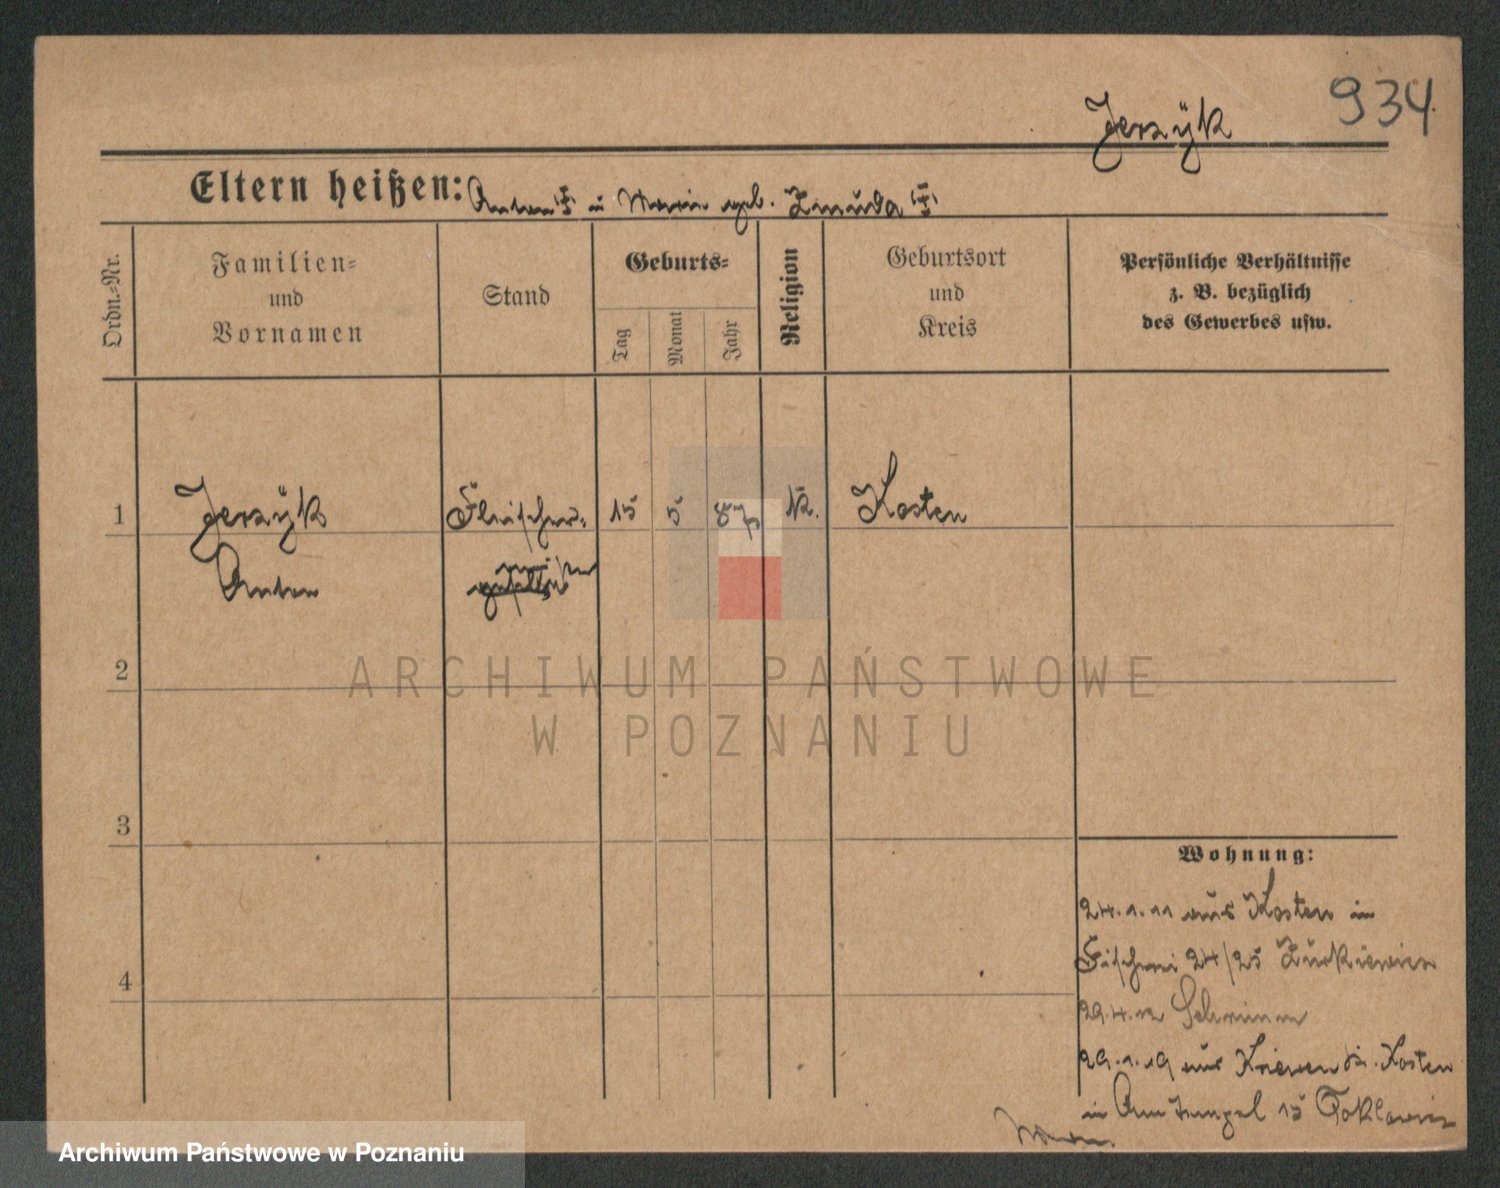 934
Jerzÿk
Eltern heißen: Anton † u Marie geb. Zmuda †
Ordn.-Nr.
Familien-
und
Vornamen
Stand
Geburts-
Tag
Monat
Jahr
Religion
Geburtsort
und
Kreis
Persönliche Verhältnisse
z. B. bezüglich
des Gewerbes usw.
1 Jerzÿk Fleischer- 15 5 87 k. Kosten
Anton meister
2
3
4
ARCHIWUM PAŃSTWOWE
W POZNANIU
Wohnung:
24.1.11 aus Kosten in
Fischerei 24/25 Zurkiewicz
29.4.12 Schrimm
29.1.19 aus Kriewen Kr. Kosten
in 15
Archiwum Państwowe w Poznaniu